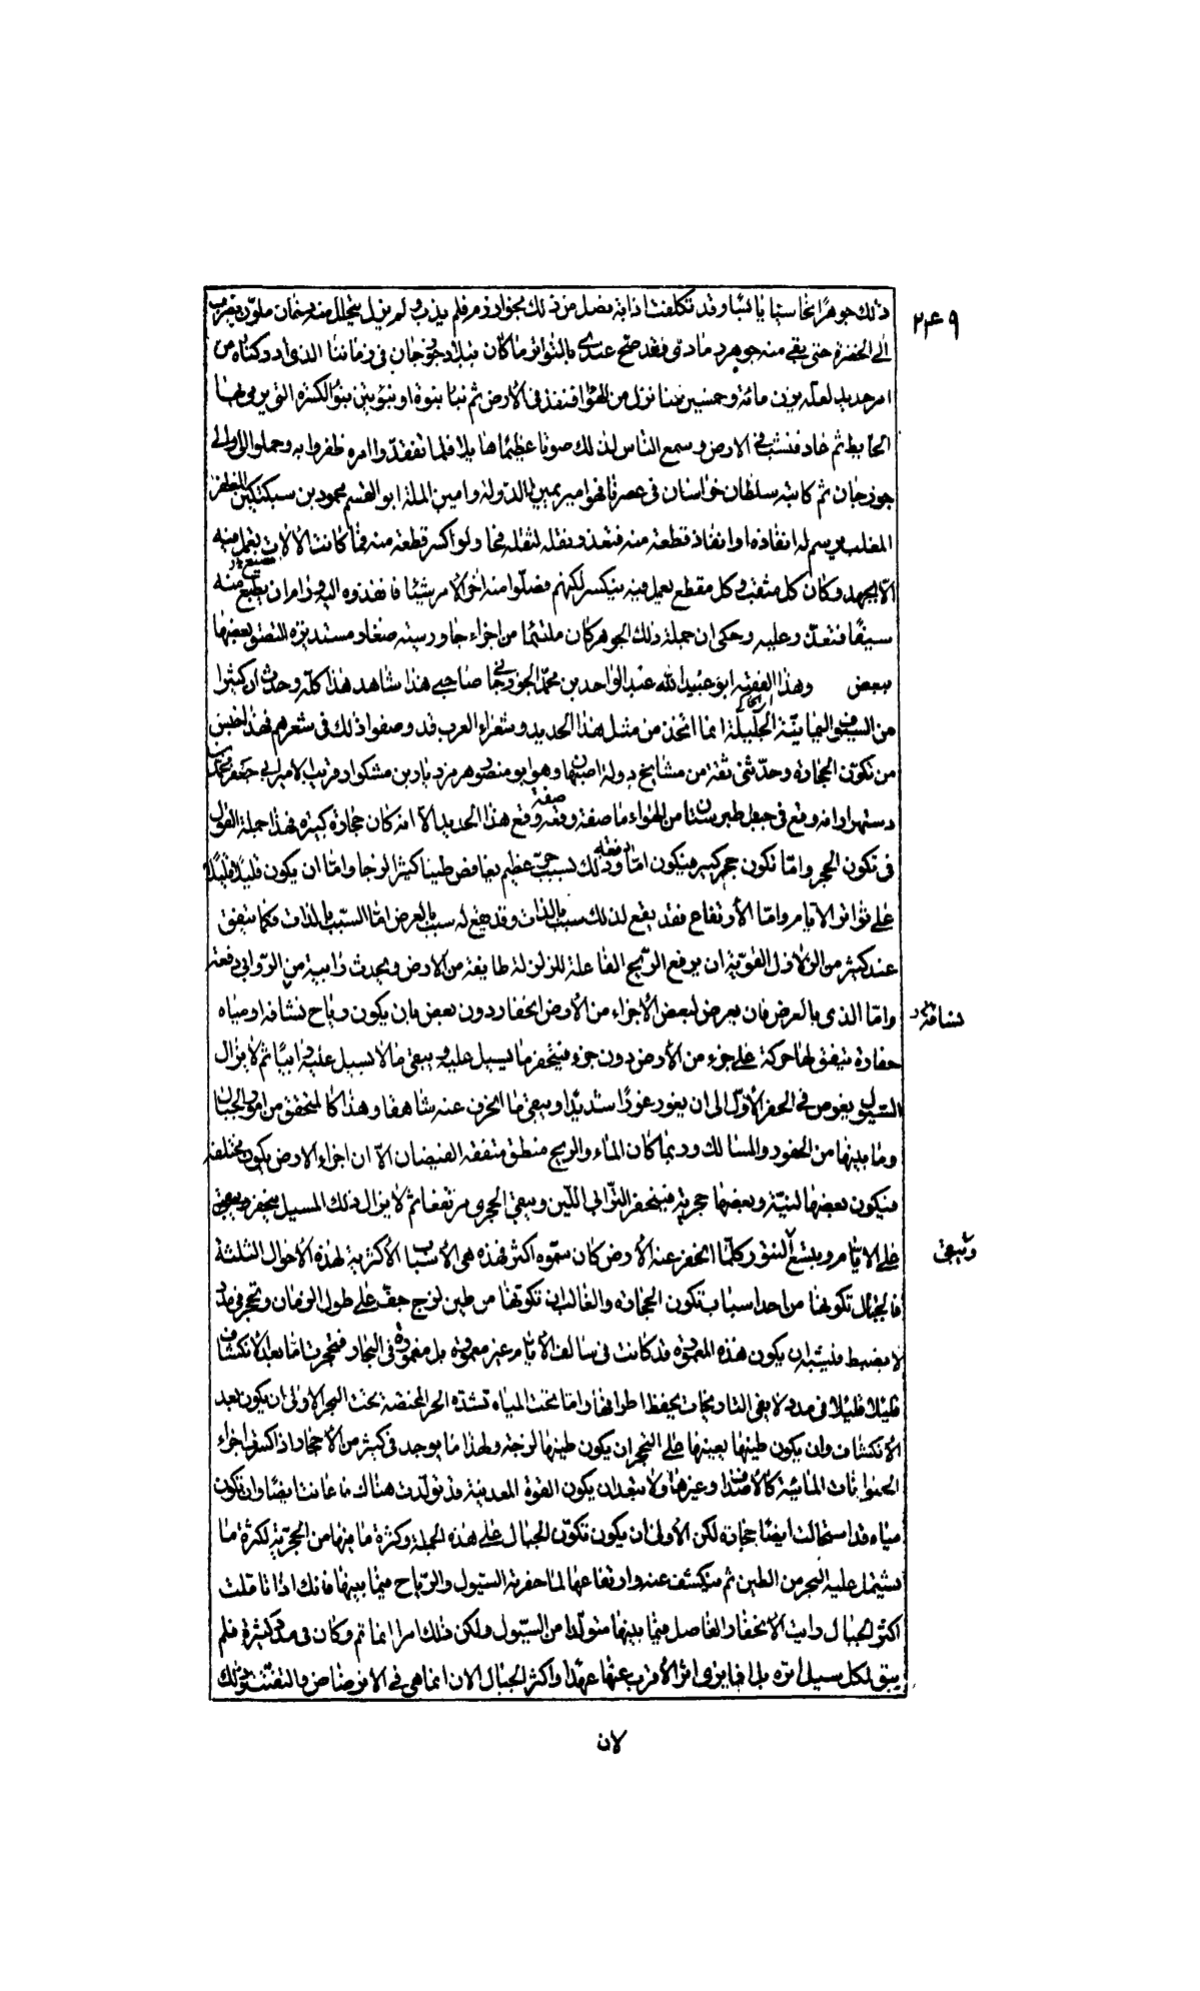 ۲۴۹
ذلك جوهرًا نحاسيا يابسًا وقد تكلفت اذابة فضل من ذلك بخوارزم فلم يذب ولم يزل يتحلل منه دخان ملوّن يضرب
الى الخضرة حتى بقى منه جوهر رمادى وقد صح عندى بالتواتر ما كان ببلاد جوزجان فى زماننا الذى ادركناه من
امر حديد لعله يزن مائة وخمسين منا نزل من الهواء فنفذ فى الارض ثم نبا نبوة او نبوتين نبو الكرة التى يرمى بها
الحائط ثم عاد فنشب فى الارض وسمع الناس لذلك صوتا عظيما هايلا فلما تفقدوا امره ظفروا به وحملوا الى والى
جوزجان ثم كاتبه سلطان خراسان فى عصرنا فهو امير يمين الدولة وامين الملة ابو القسم محمود بن سبكتكين المظفر
المغلب يرسم له انفاذه او انفاذ قطعة منه فتعذر نقله لثقله فحاولوا كسر قطعة منه فما كانت الالات يعمل فيه
الا بجهد وكان كل مثقب وكل مقطع يعمل فيه ينكسر لكنهم فصلوا منه اخر الامر شيئا فانفذوه اليه ورام ان يطبع منه
سيفًا فتعذر عليه وحكى ان جملة ذلك الجوهر كان ملتئما من اجزاء جاورسية صغار مستديرة التصق بعضها
ببعض وهذا الفقيه ابو عبيد الله عبد الواحد بن محمد الجوزجانى صاحبى هذا شاهد هذا كله وحدثت ان كثيرا
من السيوف اليمانية الجليلة انما اتخذ من مثل هذا الحديد وشعراء العرب قد وصفوا ذلك فى شعرهم فهذا جنس
من تكون الحجارة وحدثنى ثقة من مشايخ دولة اصبهان وهو ابو منصور هرمزديار بن مشكوار قريب الامير ابى جعفر محمد بن
دستهرار انه وقع فى جبل طبرستان من الهواء ما صفة وقعه صفة وقع هذا الحديد الا انه كان حجارة كبيرة فهذا جملة القول
فى تكون الحجر واما تكون حجر كبير فيكون اما دفعة وذلك بسبب حر عظيم يعافص طينا كثيرا لزجا واما ان يكون قليلا قليلا
على تواتر الايام واما الارتفاع فقد يقع لذلك سبب بالذات وقد يقع له سبب بالعرض اما السبب بالذات فكما يتفق
عند كثير من الزلازل القوية ان يرفع الريح الفاعلة للزلزلة طايفة من الارض ويحدث رابية من الروابى دفعة
واما الذى بالعرض فان يعرض لبعض الاجزاء من الارض انحفار دون بعض بان يكون رياح نسافة او مياه
نسافة
حفارة يتفق لها حركة على جزء من الارض دون جزء فيتحفر ما يسيل عليه ويبقى ما لا يسيل عليه رابيا ثم لا يزال
السيول يغوص فى الحفر الاول الى ان يغور غورًا شديدًا ويبقى ما انحرف عنه شاهقا وهذا كالمتحقق من امور الجبال
وما بينها من الحفور والمسالك وربما كان الماء والريح منطق متفقه الفيضان الا ان اجزاء الارض يكون مختلفة
فيكون بعضها لينة وبعضها حجرية فينحفر الترابى اللين ويبقى الحجرى مرتفعا ثم لا يزال ذلك المسيل ينحفر وينحفر
على الايام ويتسع النتو وكلما انحفر عنه الارض كان سموه اكثر فهذه هى الاسباب الاكثرية لهذه الاحوال الثلثة
ويبقى
فالجبال تكونها من احد اسباب تكون الحجارة والغالب ان تكونها من طين لزج جف على طول الزمان وتحجر فى مدد
لا يضبط فيشبه ان يكون هذه المعمورة قد كانت فى سالف الايام غير معمورة بل مغمورة فى البحار فتحجرت اما بعد الانكشاف
قليلا قليلا فى مدد لا يفى التاريخات بحفظ اطرافها واما تحت المياه لشدة الحر المحتقنة تحت البحر الاولى ان يكون بعد
الانكشاف وان يكون طينها يعينها على التحجر ان يكون طينها لزجة ولهذا ما يوجد فى كثير من الاحجار اذا كسر اجزاء
الحيوانات المائية كالاصداف وغيرها ولا يبعد ان يكون القوة المعدنية قد تولدت هناك فاعانت ايضا وان تكون
مياه قد استحالت ايضا حجارة لكن الاولى ان يكون تكون الجبال على هذه الجملة وكثرة ما فيها من الحجرية لكثرة ما
يشتمل عليه البحر من الطين ثم ينكشف عنه وارتفاعها لما حفرته السيول والرياح فيما بينها فانك اذا تاملت
اكثر الجبال رايت الانحفار الفاصل فيما بينها متولدا من السيول ولكن ذلك امر انما تم وكان فى مدد كثيرة فلم
يبق لكل سيل اثره بل انما يرى اثر الاقرب عنها عهدا واكثر الجبال الان انما هى فى الانرضاض والتفتت وذلك
لان